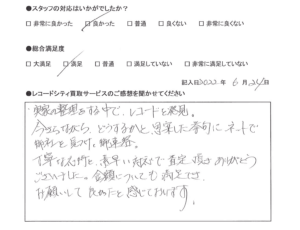 ●スタッフの対応はいかがでしたか?
□ 非常に良かった □ 良かった □ 普通 □ 良くない □ 非常に良くない
●総合満足度
□ 大満足 □ 満足 □ 普通 □ 満足していない □ 非常に満足していない
記入日2022年 6月 日
●レコードシティ買取サービスのご感想を聞かせてください
実家の整理をする中で、レコードを発見。
今さらながら、どうするかと思案した挙句に、ネットで
御社を見つけ、
丁寧な 、素早い対応で査定頂きありがとう
ございました。金額についても満足でき、
お願いして良かったと感じております。